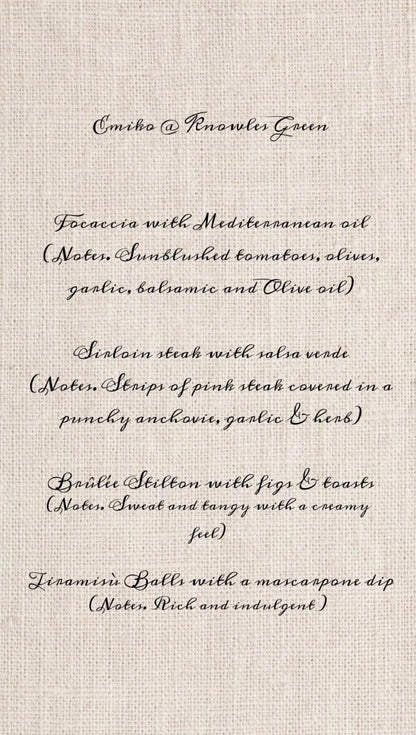 Emiko @ Knowles Green
Focaccia with Mediterranean oil
(Notes. Sunblushed tomatoes, olives,
garlic, balsamic and Olive oil)
Sirloin steak with salsa verde
(Notes. Strips of pink steak covered in a
punchy anchovie, garlic & herb)
Brûlée Stilton with figs & toasts
(Notes. Sweat and tangy with a creamy
feel)
Tiramisù Balls with a mascarpone dip
(Notes. Rich and indulgent )